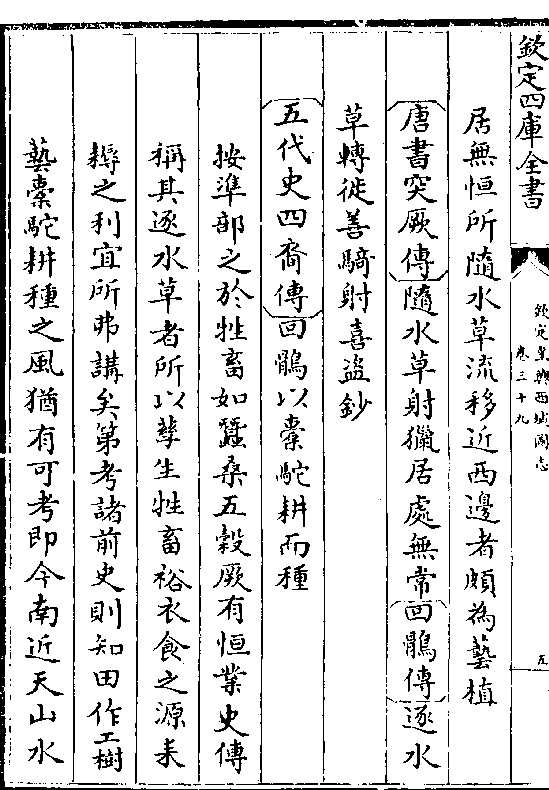 欽定四庫全書
欽定皇輿西域圖志
卷三十九
五
居無恒所隨水草流移近西邊者頗為藝植
唐書突厥傳隨水草射獵居處無常回鶻傳逐水
草轉徙善騎射喜盗鈔
五代史四裔傳回鶻以橐駝耕而種
按準部之於牲畜如蠶桑五穀厥有恒業史傳
稱其逐水草者所以孳生牲畜裕衣食之源耒
耨之利宜所弗講矣第考諸前史則知田作工樹
藝橐駝耕種之風猶有可考即今南近天山水